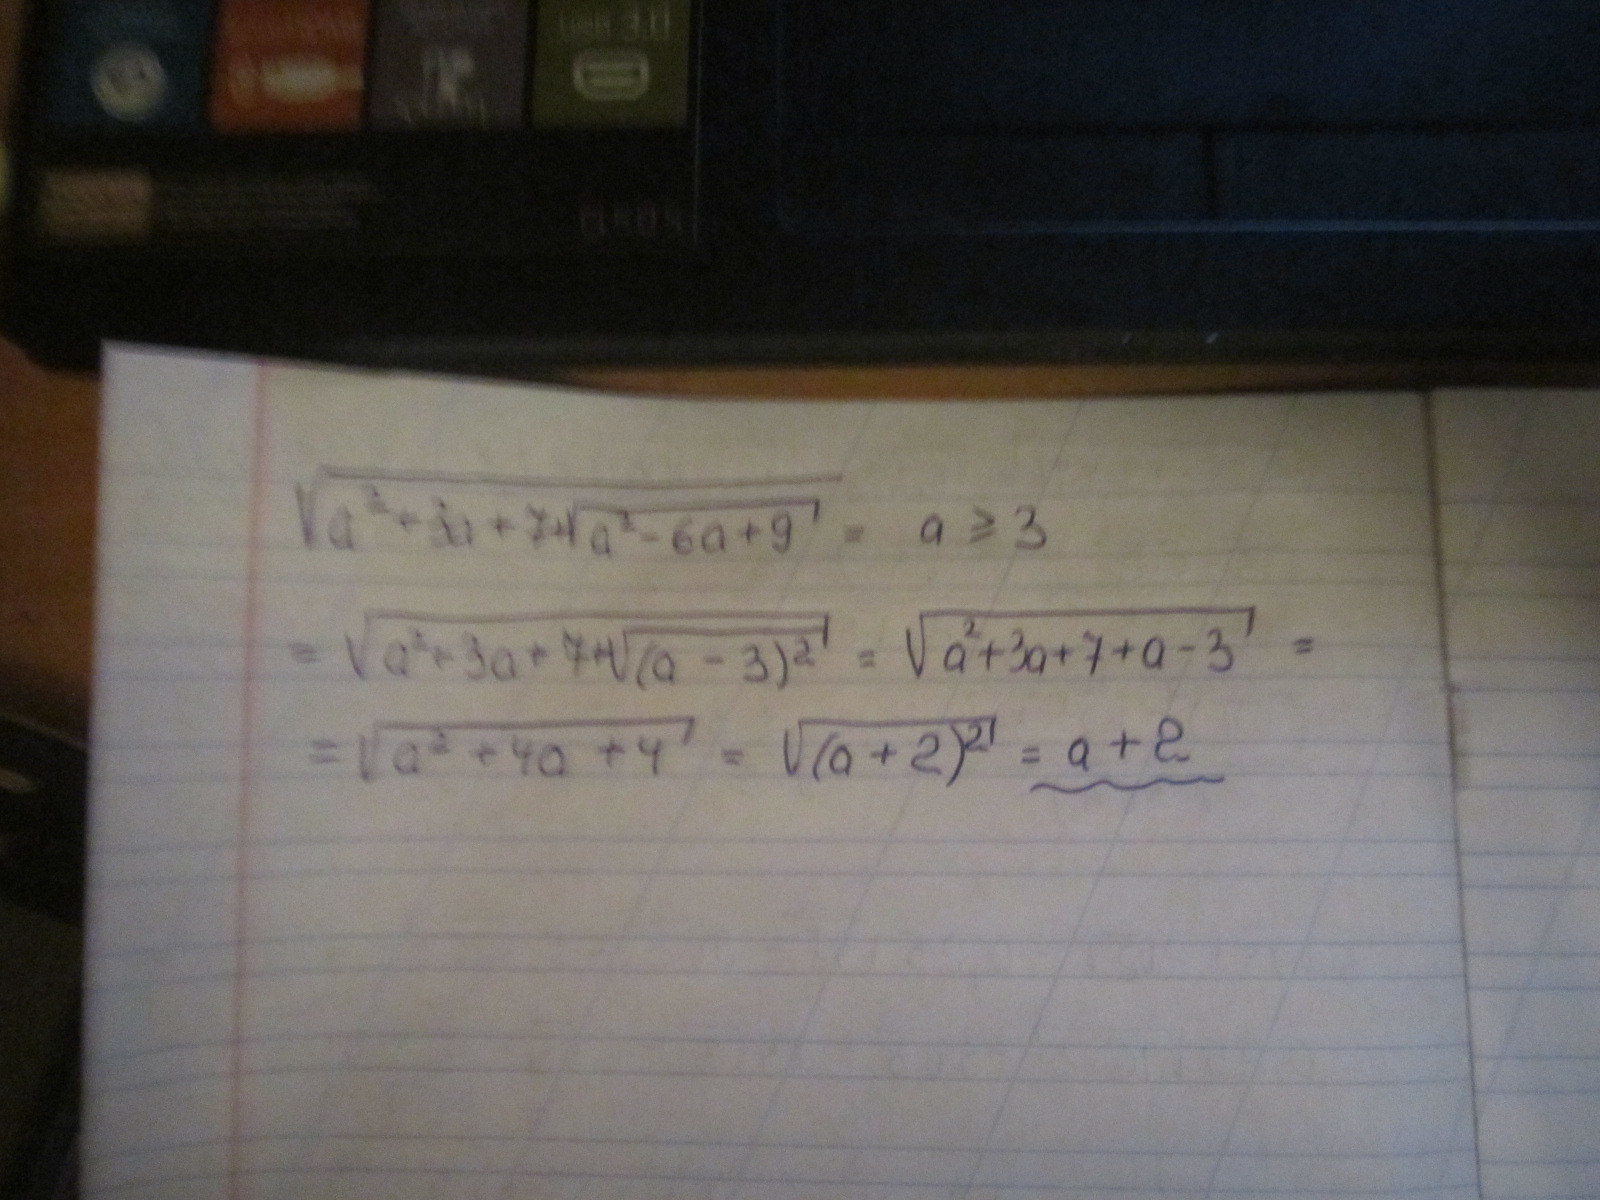 USB 3.0
√(a² + 3a + 7 + √(a² - 6a + 9)) = a ≥ 3
= √(a² + 3a + 7 + √(a - 3)²) = √(a² + 3a + 7 + a - 3) =
= √(a² + 4a + 4) = √(a + 2)² = a + 2